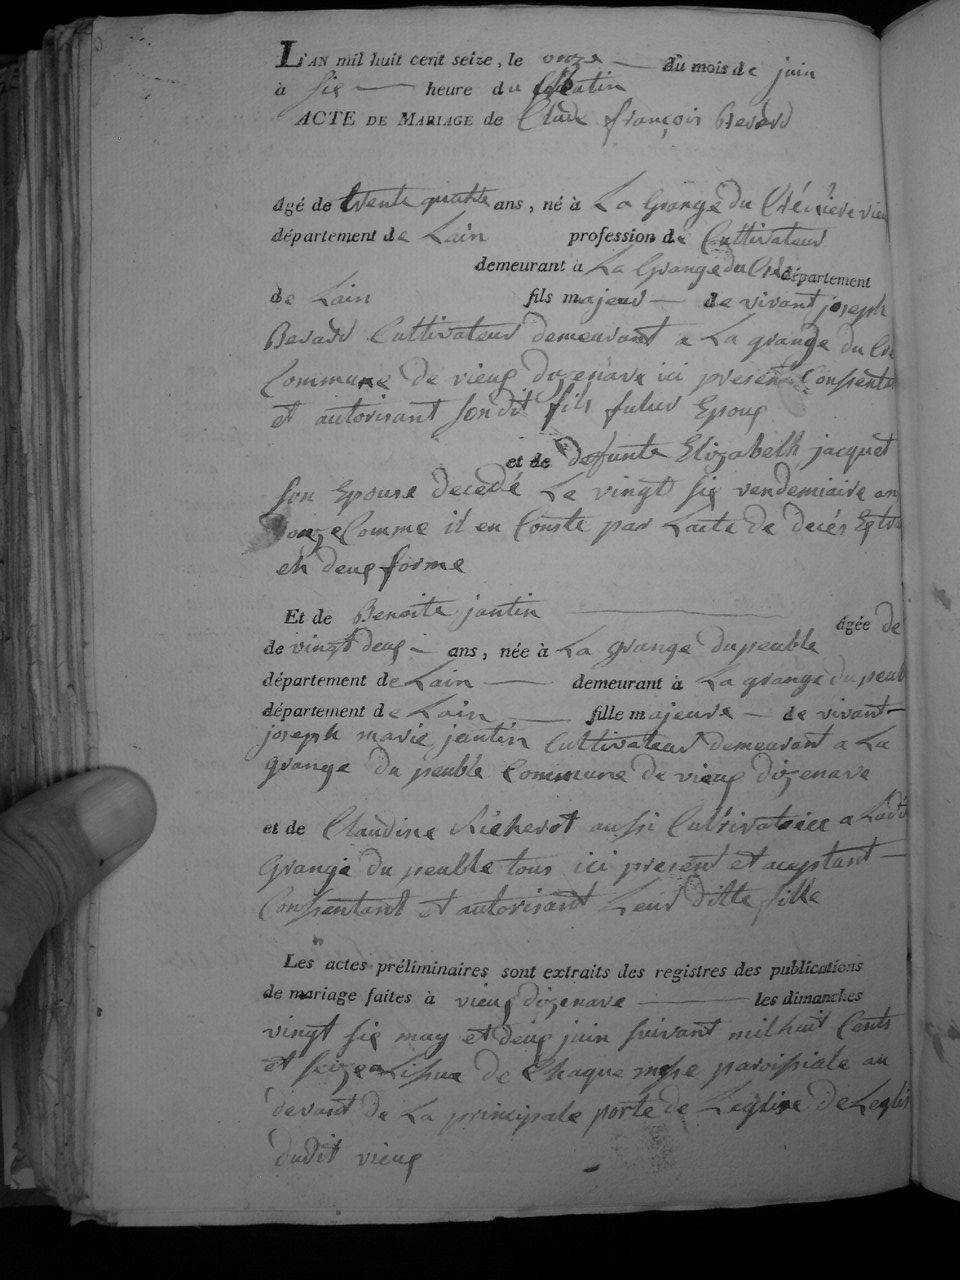 L'AN mil huit cent seize, le onze du mois de juin
à six heure du Matin
ACTE DE MARIAGE de Claude françois Berard
âgé de trente quatre ans, né à La Grange du vieu
département de Lain profession de Cultivateur
demeurant à La Grange du Cre département
de Lain fils majeur de vivant joseph
Berard Cultivateur demeurant a La grange du Cre
Commune de vieux dizenave ici present Consenta
et autorisant son dit fils futur Epoux
et de defunte Elizabeth jacquet
son Epouse decedé Le vingt six vendemiaire an
onze Comme il en Conste par Lacte de decés
en deux forme
Et de Benoite jantin âgée de
de vingt deux ans, née à La grange du peuble
département de Lain demeurant à La grange du peub
département de Lain fille majeure de vivant
joseph marie jantin Cultivateur demeurant a La
grange du peuble Commune de vieux dizenave
et de Claudine Richerot aussi Cultivatrice a Ladt
Grange du peuble tous ici present et aceptant
Consentant et autorisant Leur ditte fille
Les actes préliminaires sont extraits des registres des publications
de mariage faites à vieux dizenave les dimanches
vingt six may et deux juin suivant mil huit Cents
et seize a Lissue de Chaque messe paroissiale au
devant de La principale porte de Leglise de Leglis
dudit vieux